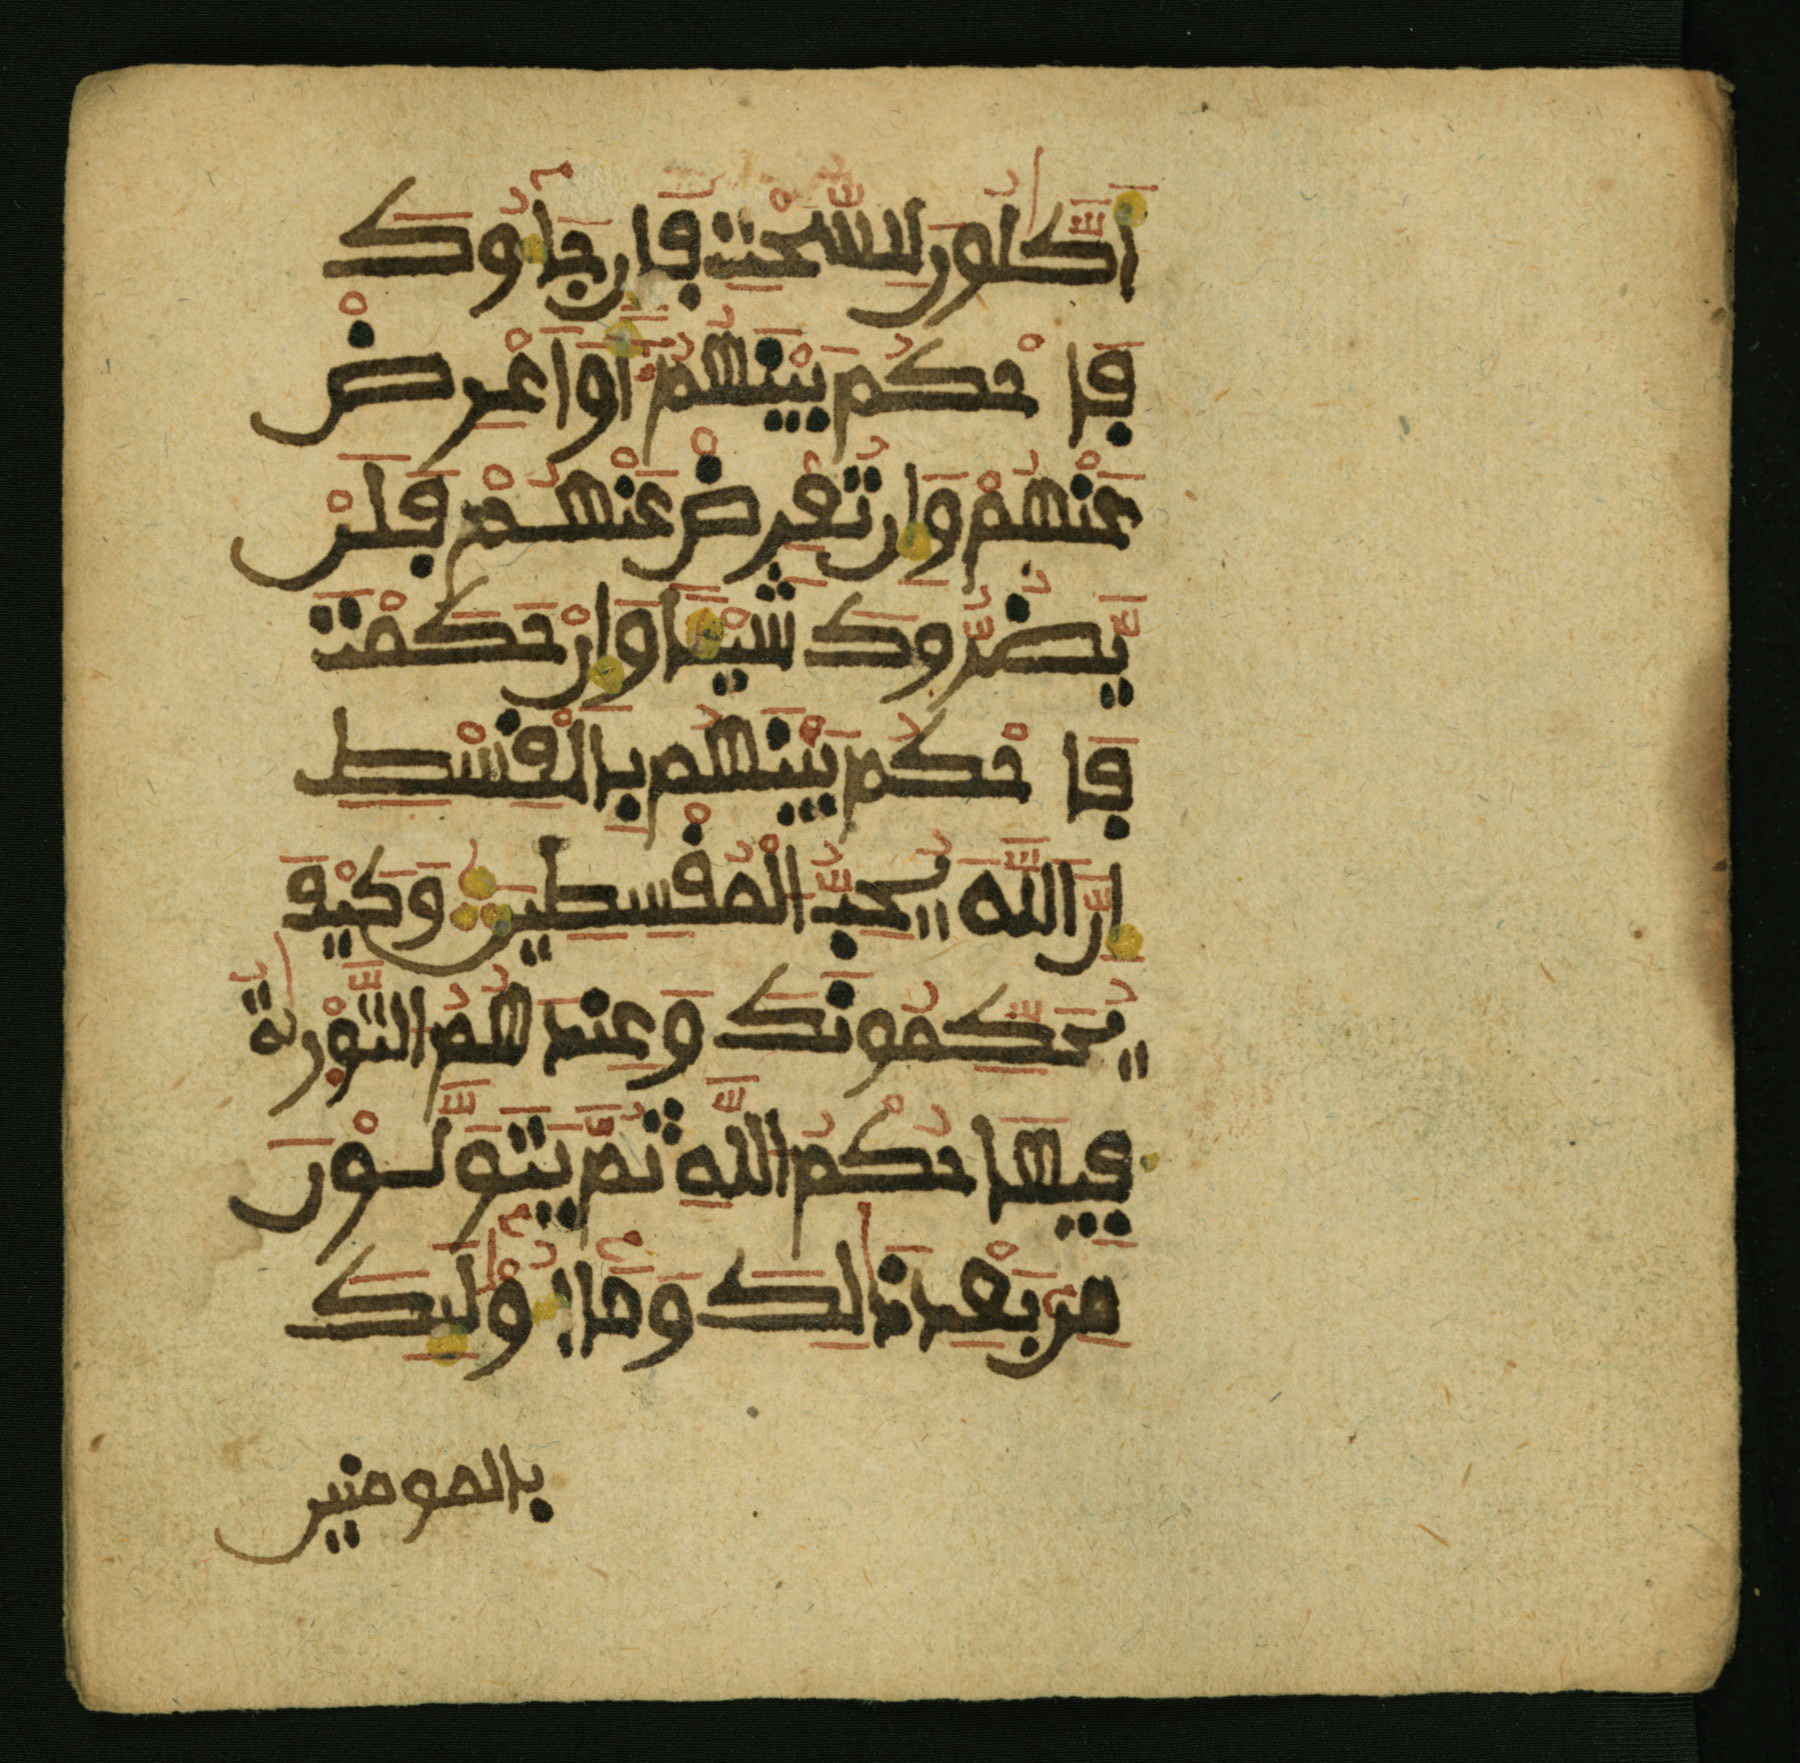 أَكَّٰلُونَ لِلسُّحْتِ فَإِن جَآءُوكَ
فَاحْكُم بَيْنَهُمُ أَوَ اَعْرِضْ
عَنْهُمْ وَإِن تُعْرِضْ عَنْهُمْ فَلَنْ
يَّضُرُّوكَ شَيْـًٔا وَإِنْ حَكَمْتَ
فَاحْكُم بَيْنَهُم بِالْقِسْطِ
إِنَّ اللَّهَ يُحِبُّ الْمُقْسِطِينَ وَكَيْفَ
يُحَكِّمُونَكَ وَعِندَهُمُ التَّوْرٰىةُ
فِيهَا حُكْمُ اللَّهِ ثُمَّ يَتَوَلَّوْنَ
مِن بَعْدِ ذَٰلِكَ وَمَآ أُوْلَٰٓئِكَ
بالمومنين